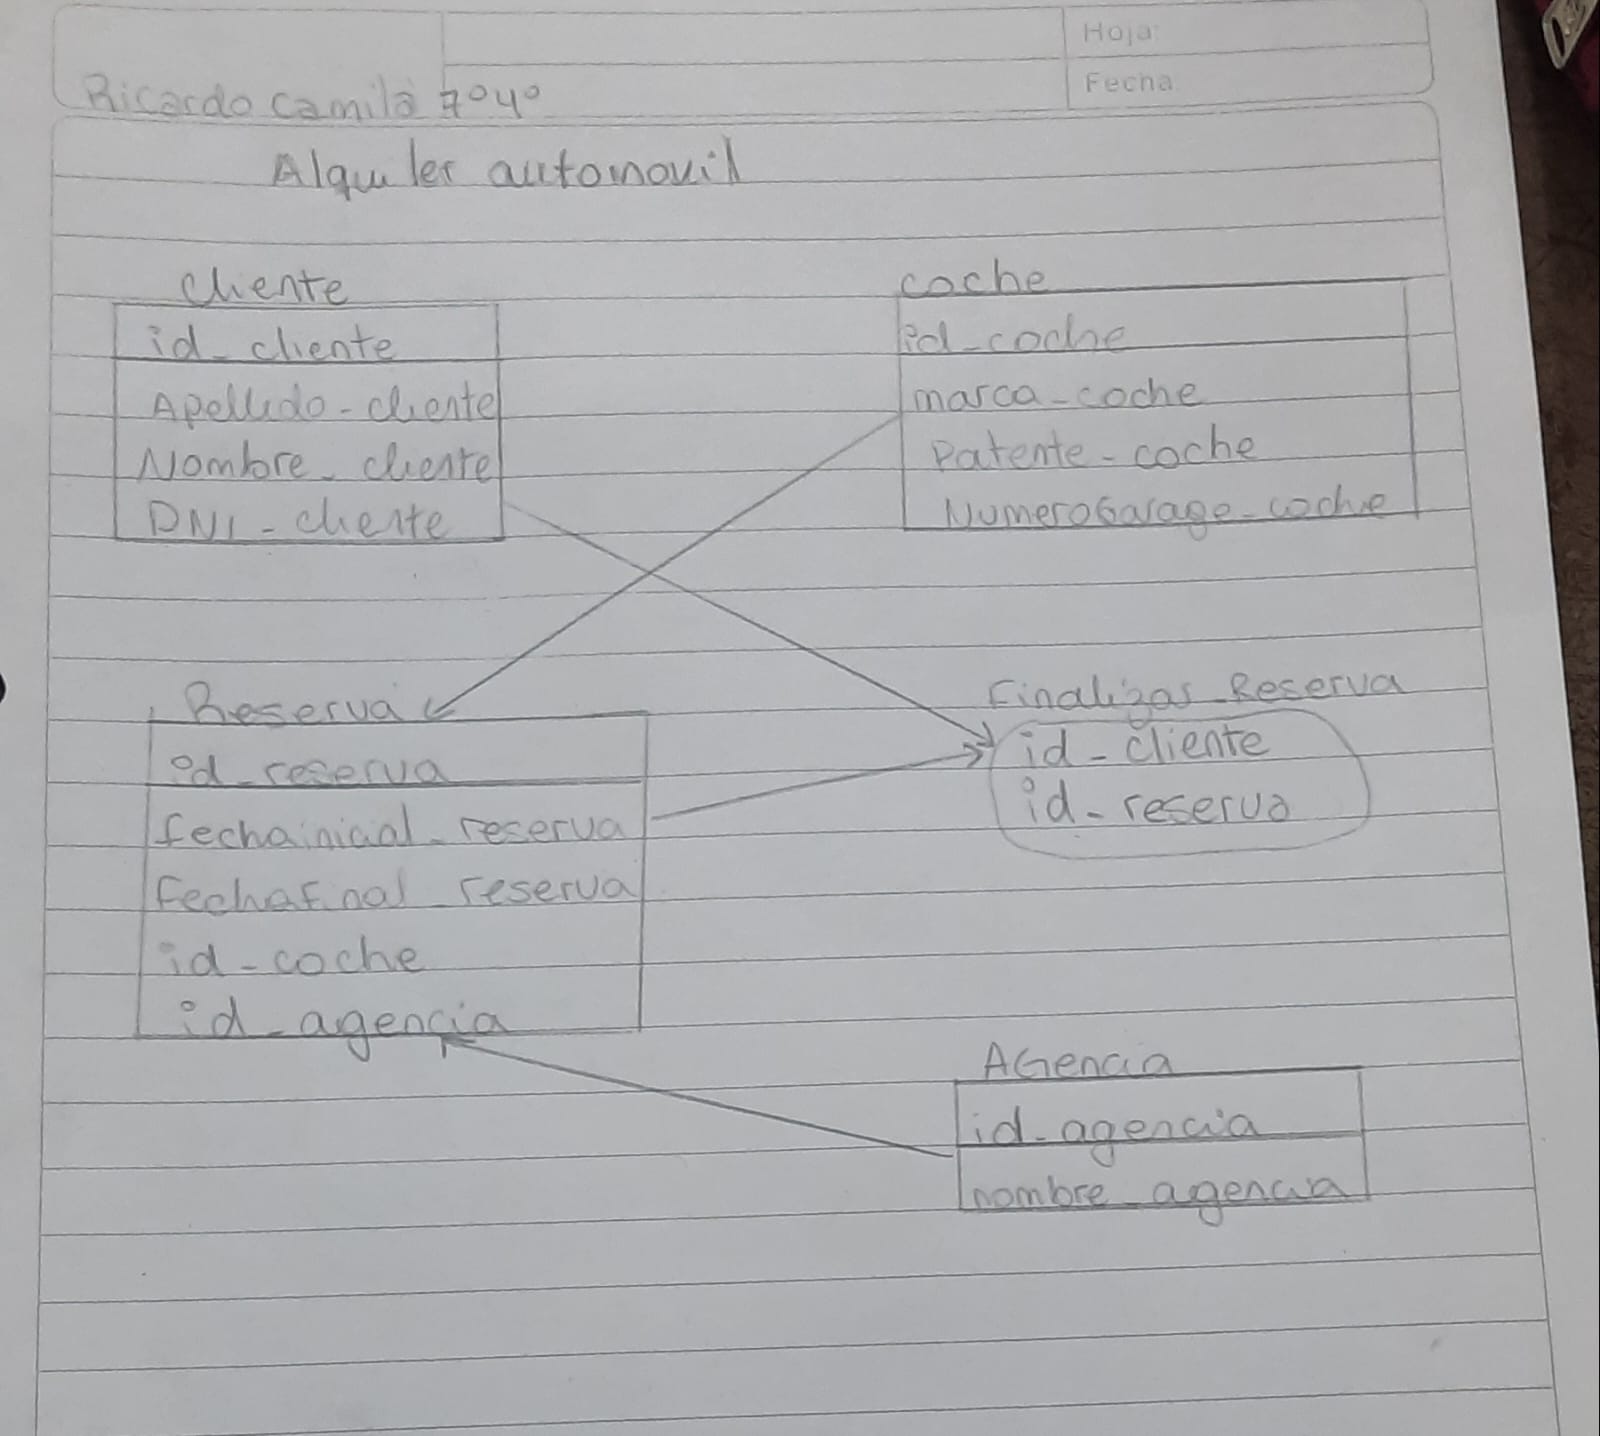 Hoja:
Fecha
Ricardo Camila 7°4°
Alquiler automovil
Cliente
id_cliente
Apellido-cliente
Nombre_cliente
DNI-cliente
coche
id-coche
marca-coche
Patente-coche
NumeroGarage-coche
Reserva
id_reserva
fechainicial_reserva
fechafinal_reserva
id-coche
id_agencia
Finalizar_Reserva
id-cliente
id-reserva
AGencia
id-agencia
nombre_agencia